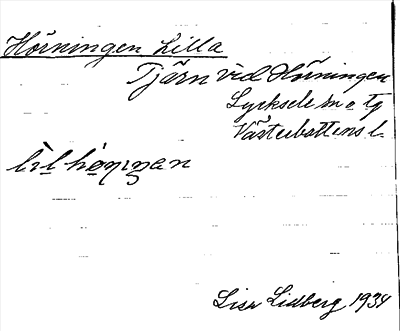 Hörningen Lilla
Tjärn vid Hörningen
Lycksele sn o tg
Västerbottens l.
lìl hø̀niŋan
Lisa Lidberg 1934